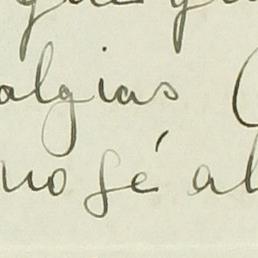 algias (
no sé al